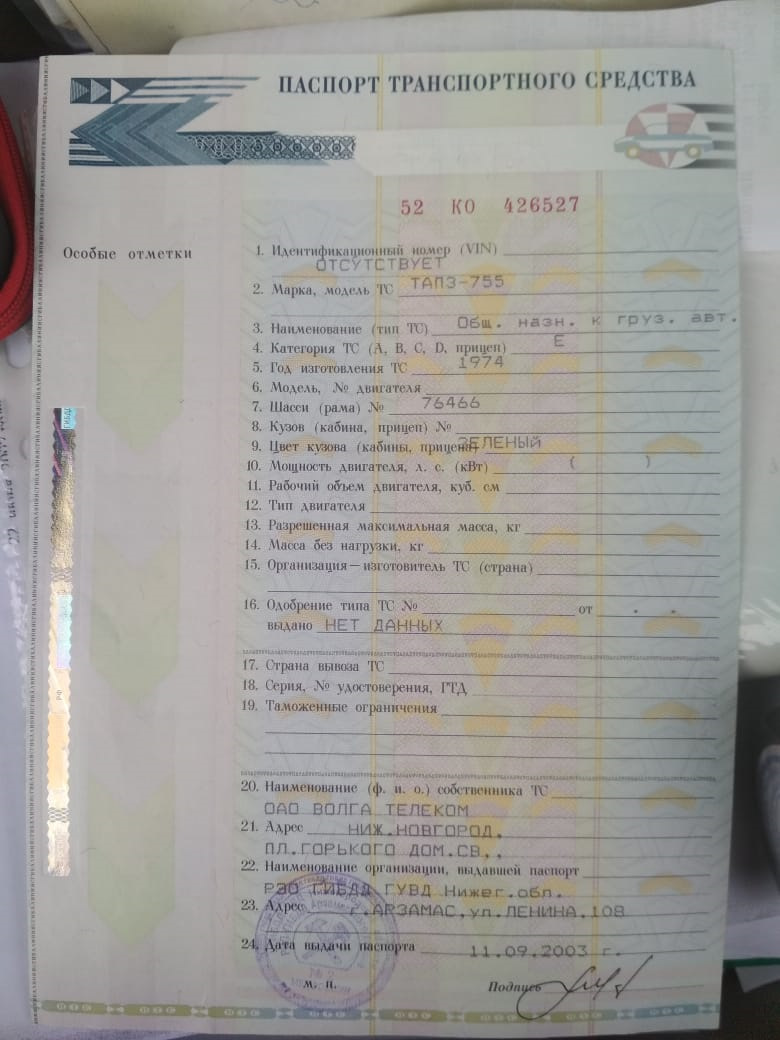 ПАСПОРТ ТРАНСПОРТНОГО СРЕДСТВА
52 КО 426527
Особые отметки
1. Идентификационный номер (VIN)
ОТСУТСТВУЕТ
2. Марка, модель ТС ТАПЗ-755
3. Наименование (тип ТС) Общ. назн. к груз. авт.
4. Категория ТС (А, В, С, D, прицеп) Е
5. Год изготовления ТС 1974
6. Модель, № двигателя
7. Шасси (рама) № 76466
8. Кузов (кабина, прицеп) №
9. Цвет кузова (кабины, прицепа) ЗЕЛЕНЫЙ
10. Мощность двигателя, л. с. (кВт) ( )
11. Рабочий объем двигателя, куб. см
12. Тип двигателя
13. Разрешенная максимальная масса, кг
14. Масса без нагрузки, кг
15. Организация—изготовитель ТС (страна)
16. Одобрение типа ТС № от . .
выдано НЕТ ДАННЫХ
17. Страна вывоза ТС
18. Серия, № удостоверения, ГТД
19. Таможенные ограничения
20. Наименование (ф. и. о.) собственника ТС
ОАО ВОЛГА ТЕЛЕКОМ
21. Адрес НИЖ.НОВГОРОД,
ПЛ.ГОРЬКОГО ДОМ.СВ,,
22. Наименование организации, выдавшей паспорт
РЭО ГИБДД ГУВД Нижег.обл.
23. Адрес г.АРЗАМАС,ул.ЛЕНИНА,108
24. Дата выдачи паспорта 11.09.2003 г.
м. п. Подпись